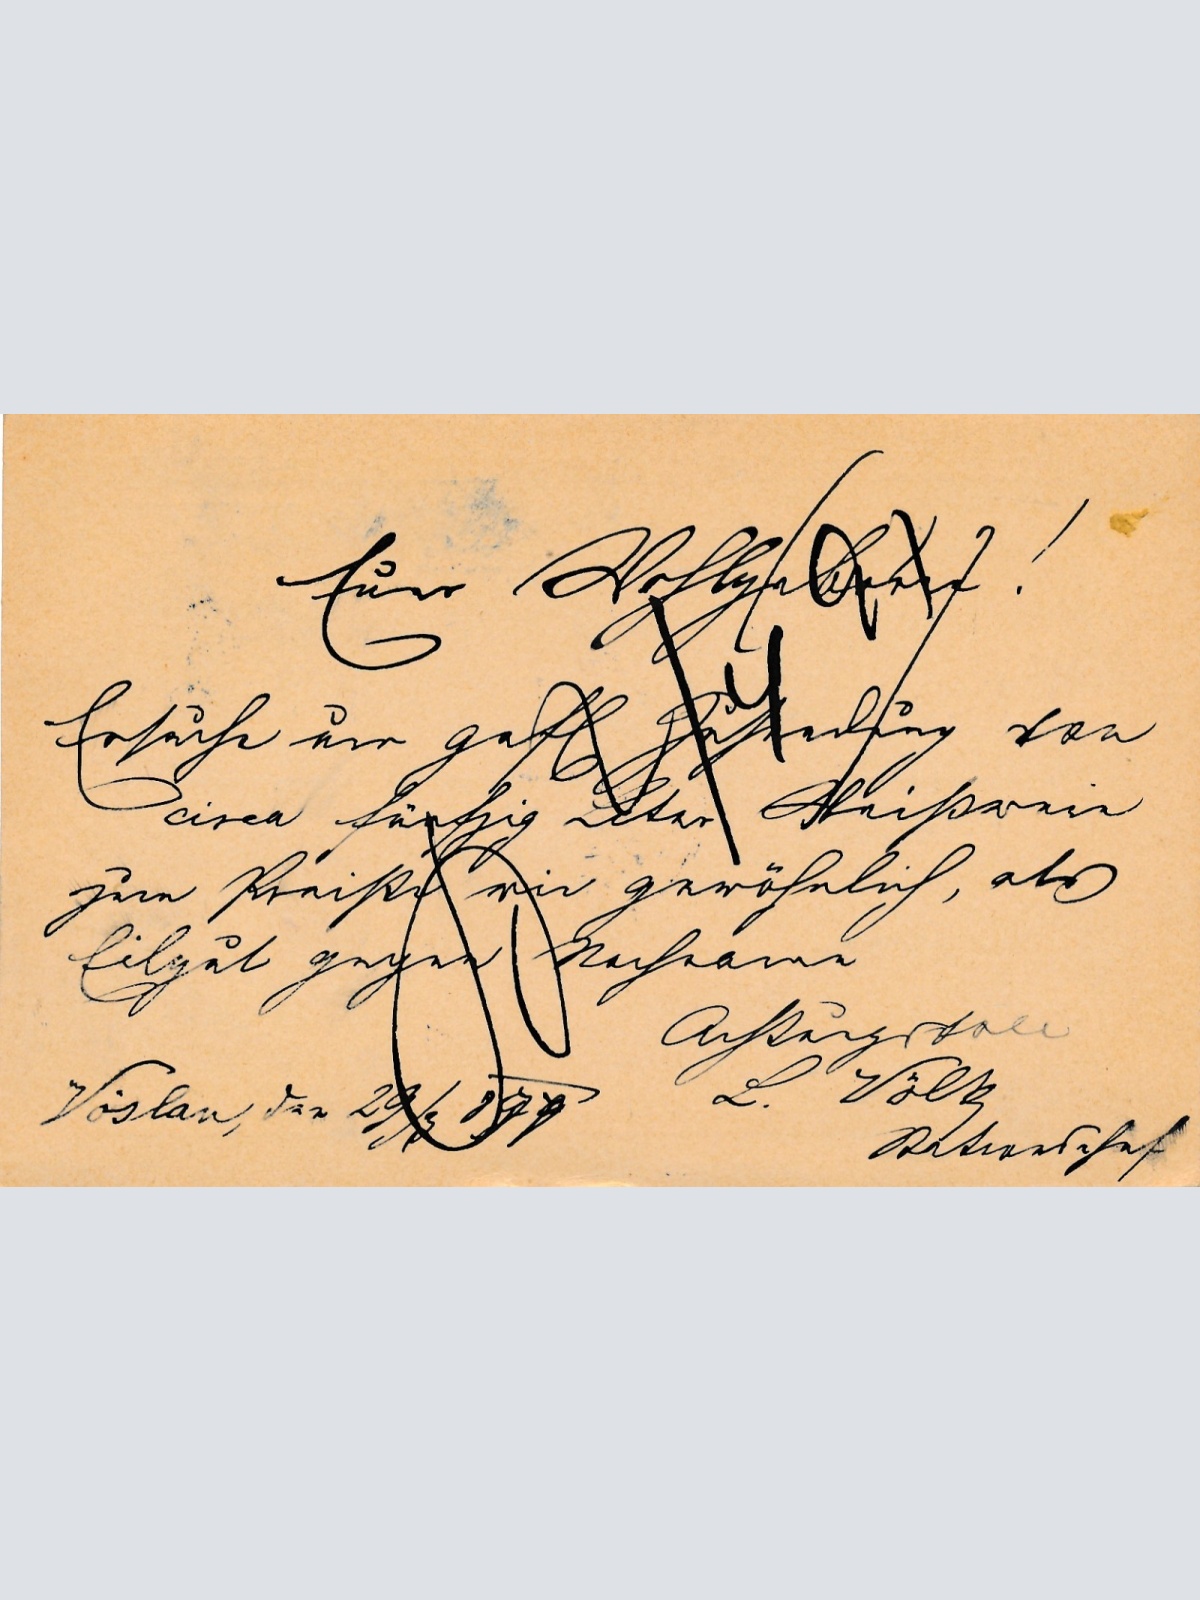 Euer Wohlgeboren!
Ersuche um gefl. Zusendung von
circa fünfzig Liter Weißwein
zum Preiße wie gewöhnlich, als
Eilgut gegen Nachname
Achtungsvoll
L. Völtz
Vöslau, den 29/3 879
Stationschef